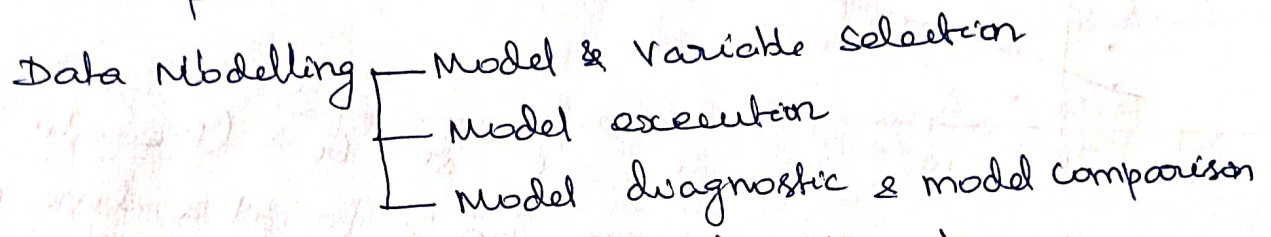 Data Modelling - Model & Variable Selection
- Model execution
- Model diagnostic & model comparison